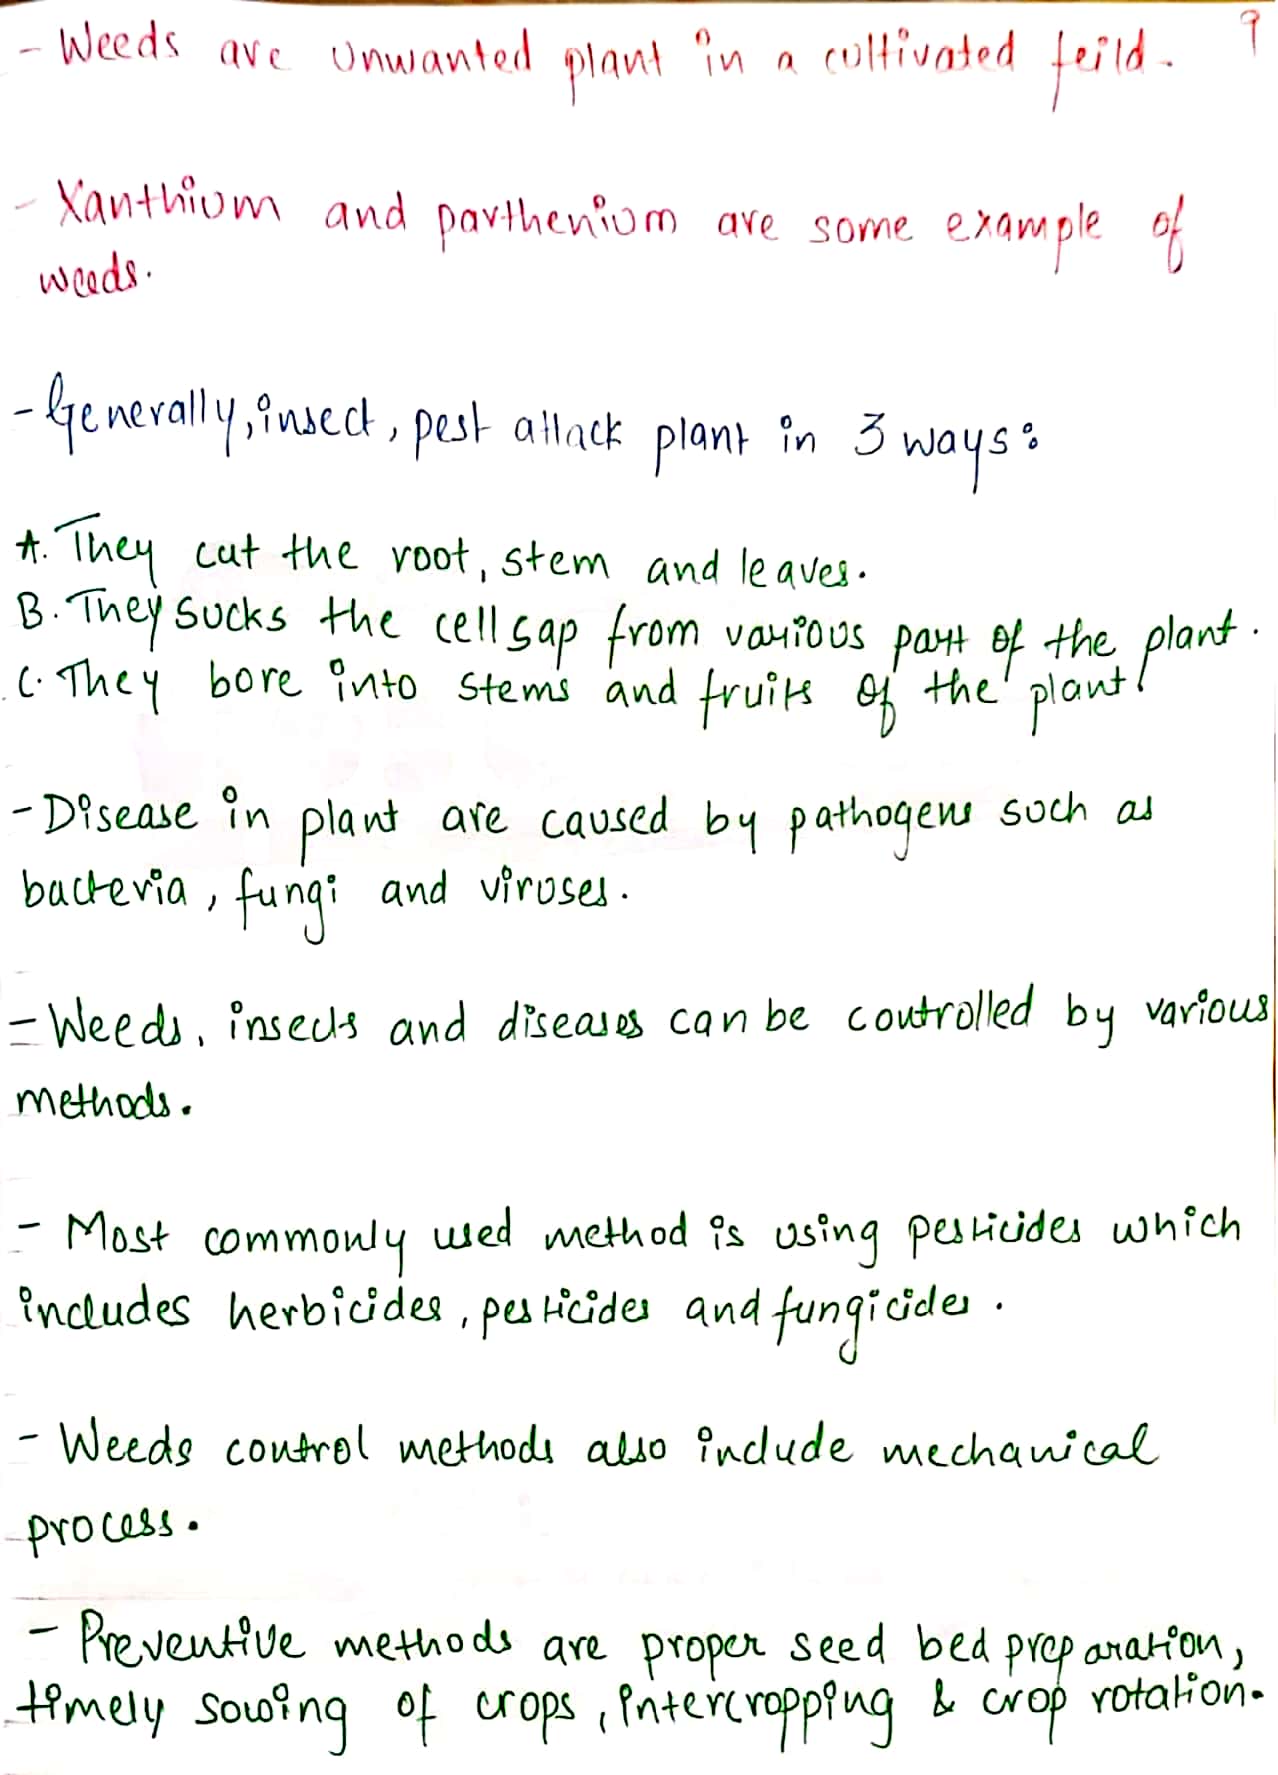 - Weeds are unwanted plant in a cultivated feild. 9
- Xanthium and parthenium are some example of
weeds.
- Generally, insect, pest attack plant in 3 ways:
A. They cut the root, stem and leaves.
B. They sucks the cell sap from various part of the plant.
C. They bore into stems and fruits of the plant.
- Disease in plant are caused by pathogens such as
bacteria, fungi and viruses.
- Weeds, insects and diseases can be controlled by various
methods.
- Most commonly used method is using pesticides which
includes herbicides, pesticides and fungicides.
- Weeds control methods also include mechanical
process.
- Preventive methods are proper seed bed preparation,
timely sowing of crops, intercropping & crop rotation.